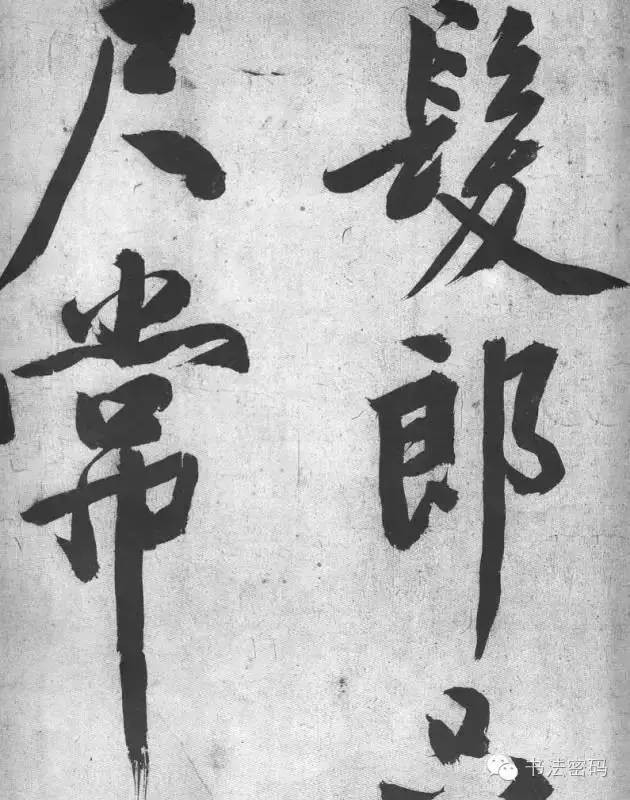 髮郎
尺常
书法密码